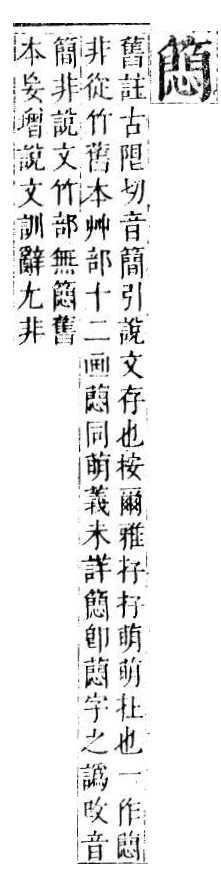 𥳑
舊註古限切音簡引說文存也按爾雅存存萌萌在也一作蕄
非從竹舊本艸部十二画蕄同萌義未詳𥳑卽蕄字之譌改音
簡非說文竹部無𥳑舊
本妄增說文訓辭尤非